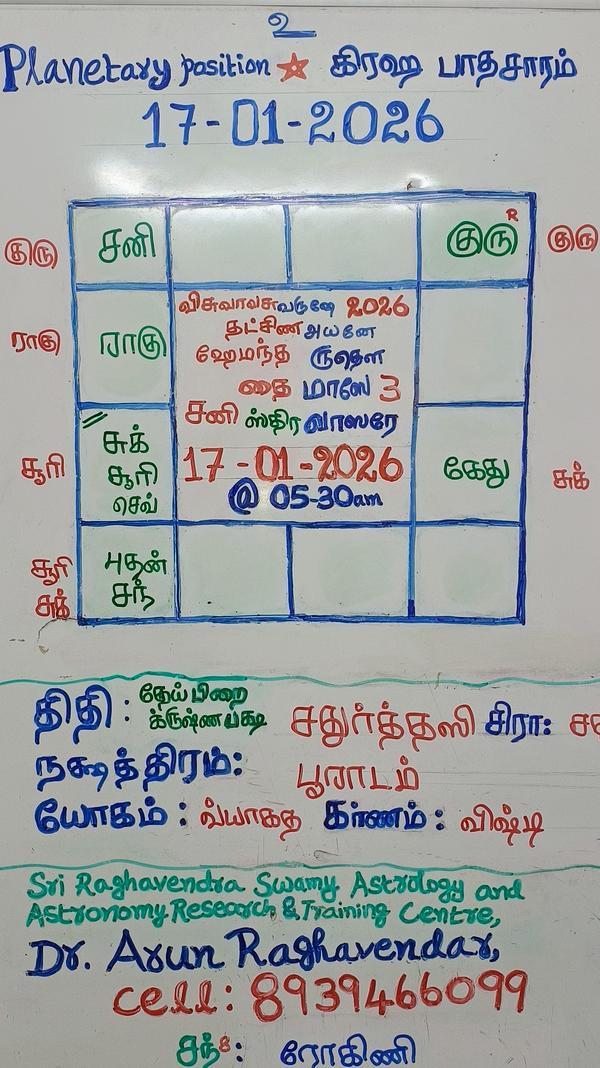 உ
Planetary position ☆ கிரஹ பாதசாரம்
17-01-2026
குரு சனி குரு R குரு
விசுவாவசு வருஷே 2026
தட்சிண அயனே
ராகு ராகு ஹேமந்த ருதௌ
தை மாஸே 3
சனி ஸ்திர வாஸரே
சூரி சுக் சூரி செவ் 17-01-2026 கேது சுக்
@ 05-30am
சூரி சுக் புதன் சந்
திதி : தேய்பிறை
க்ருஷ்ணபக்ஷ சதுர்த்தஸி சிரா:
நக்ஷத்திரம்: பூராடம்
யோகம் : வ்யாகத கர்ணம் : விஷ்டி
Sri Raghavendra Swamy Astrology and
Astronomy Research & Training Centre,
Dr. Arun Raghavendar,
cell: 8939466099
சந்8: ரோகிணி